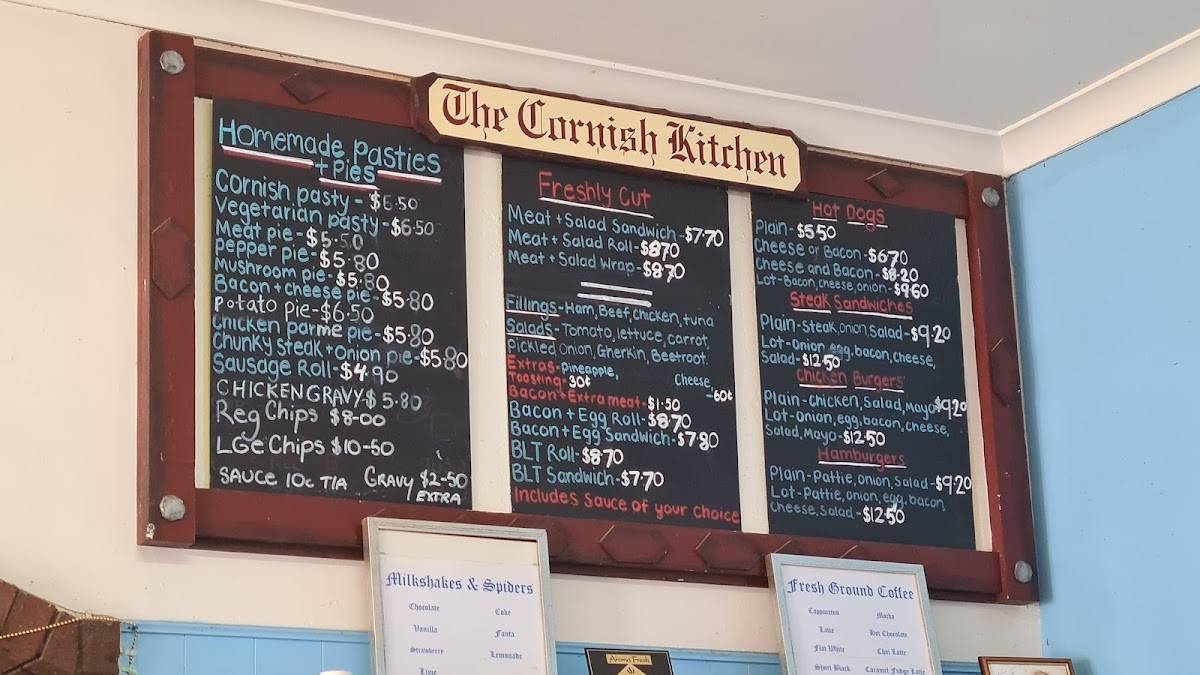 The Cornish Kitchen
Homemade Pasties
+ Pies
Cornish pasty - $6.50
Vegetarian pasty - $6.50
Meat pie - $5.50
pepper pie - $5.80
Mushroom pie - $5.80
Bacon + cheese pie - $5.80
Potato pie - $6.50
Chicken parme pie - $5.80
Chunky steak + onion pie - $5.80
Sausage Roll - $4.90
CHICKEN GRAVY - $5.80
Reg Chips $8-00
LGe Chips $10-50
SAUCE 10c T/A GRAVY $2-50
EXTRA
Freshly Cut
Meat + Salad Sandwich - $7.70
Meat + Salad Roll - $8.70
Meat + Salad Wrap - $8.70
Fillings - Ham, Beef, Chicken, tuna
Salads - Tomato, lettuce, carrot,
Pickled Onion, Gherkin, Beetroot.
Extras - Pineapple, Cheese,
Toasting - 30¢ - 60¢
Bacon + Extra meat - $1.50
Bacon + Egg Roll - $8.70
Bacon + Egg Sandwich - $7.80
BLT Roll - $8.70
BLT Sandwich - $7.70
Includes Sauce of your Choice
Hot Dogs
Plain - $5.50
Cheese or Bacon - $6.70
Cheese and Bacon - $8.20
Lot - Bacon, cheese, onion - $9.60
Steak Sandwiches
Plain - Steak, onion, Salad - $9.20
Lot - Onion, egg, bacon, cheese,
Salad - $12.50
Chicken Burgers
Plain - Chicken, Salad, Mayo $9.20
Lot - Onion, egg, bacon, cheese,
Salad, Mayo - $12.50
Hamburgers
Plain - Pattie, onion, Salad - $9.20
Lot - Pattie, onion, egg, bacon,
Cheese, Salad - $12.50
Milkshakes & Spiders
Chocolate Coke
Vanilla Fanta
Strawberry Lemonade
Lime
Aroma Fresh
Fresh Ground Coffee
Cappuccino Mocha
Latte Hot Chocolate
Flat White Chai Latte
Short Black Caramel Fudge Latte